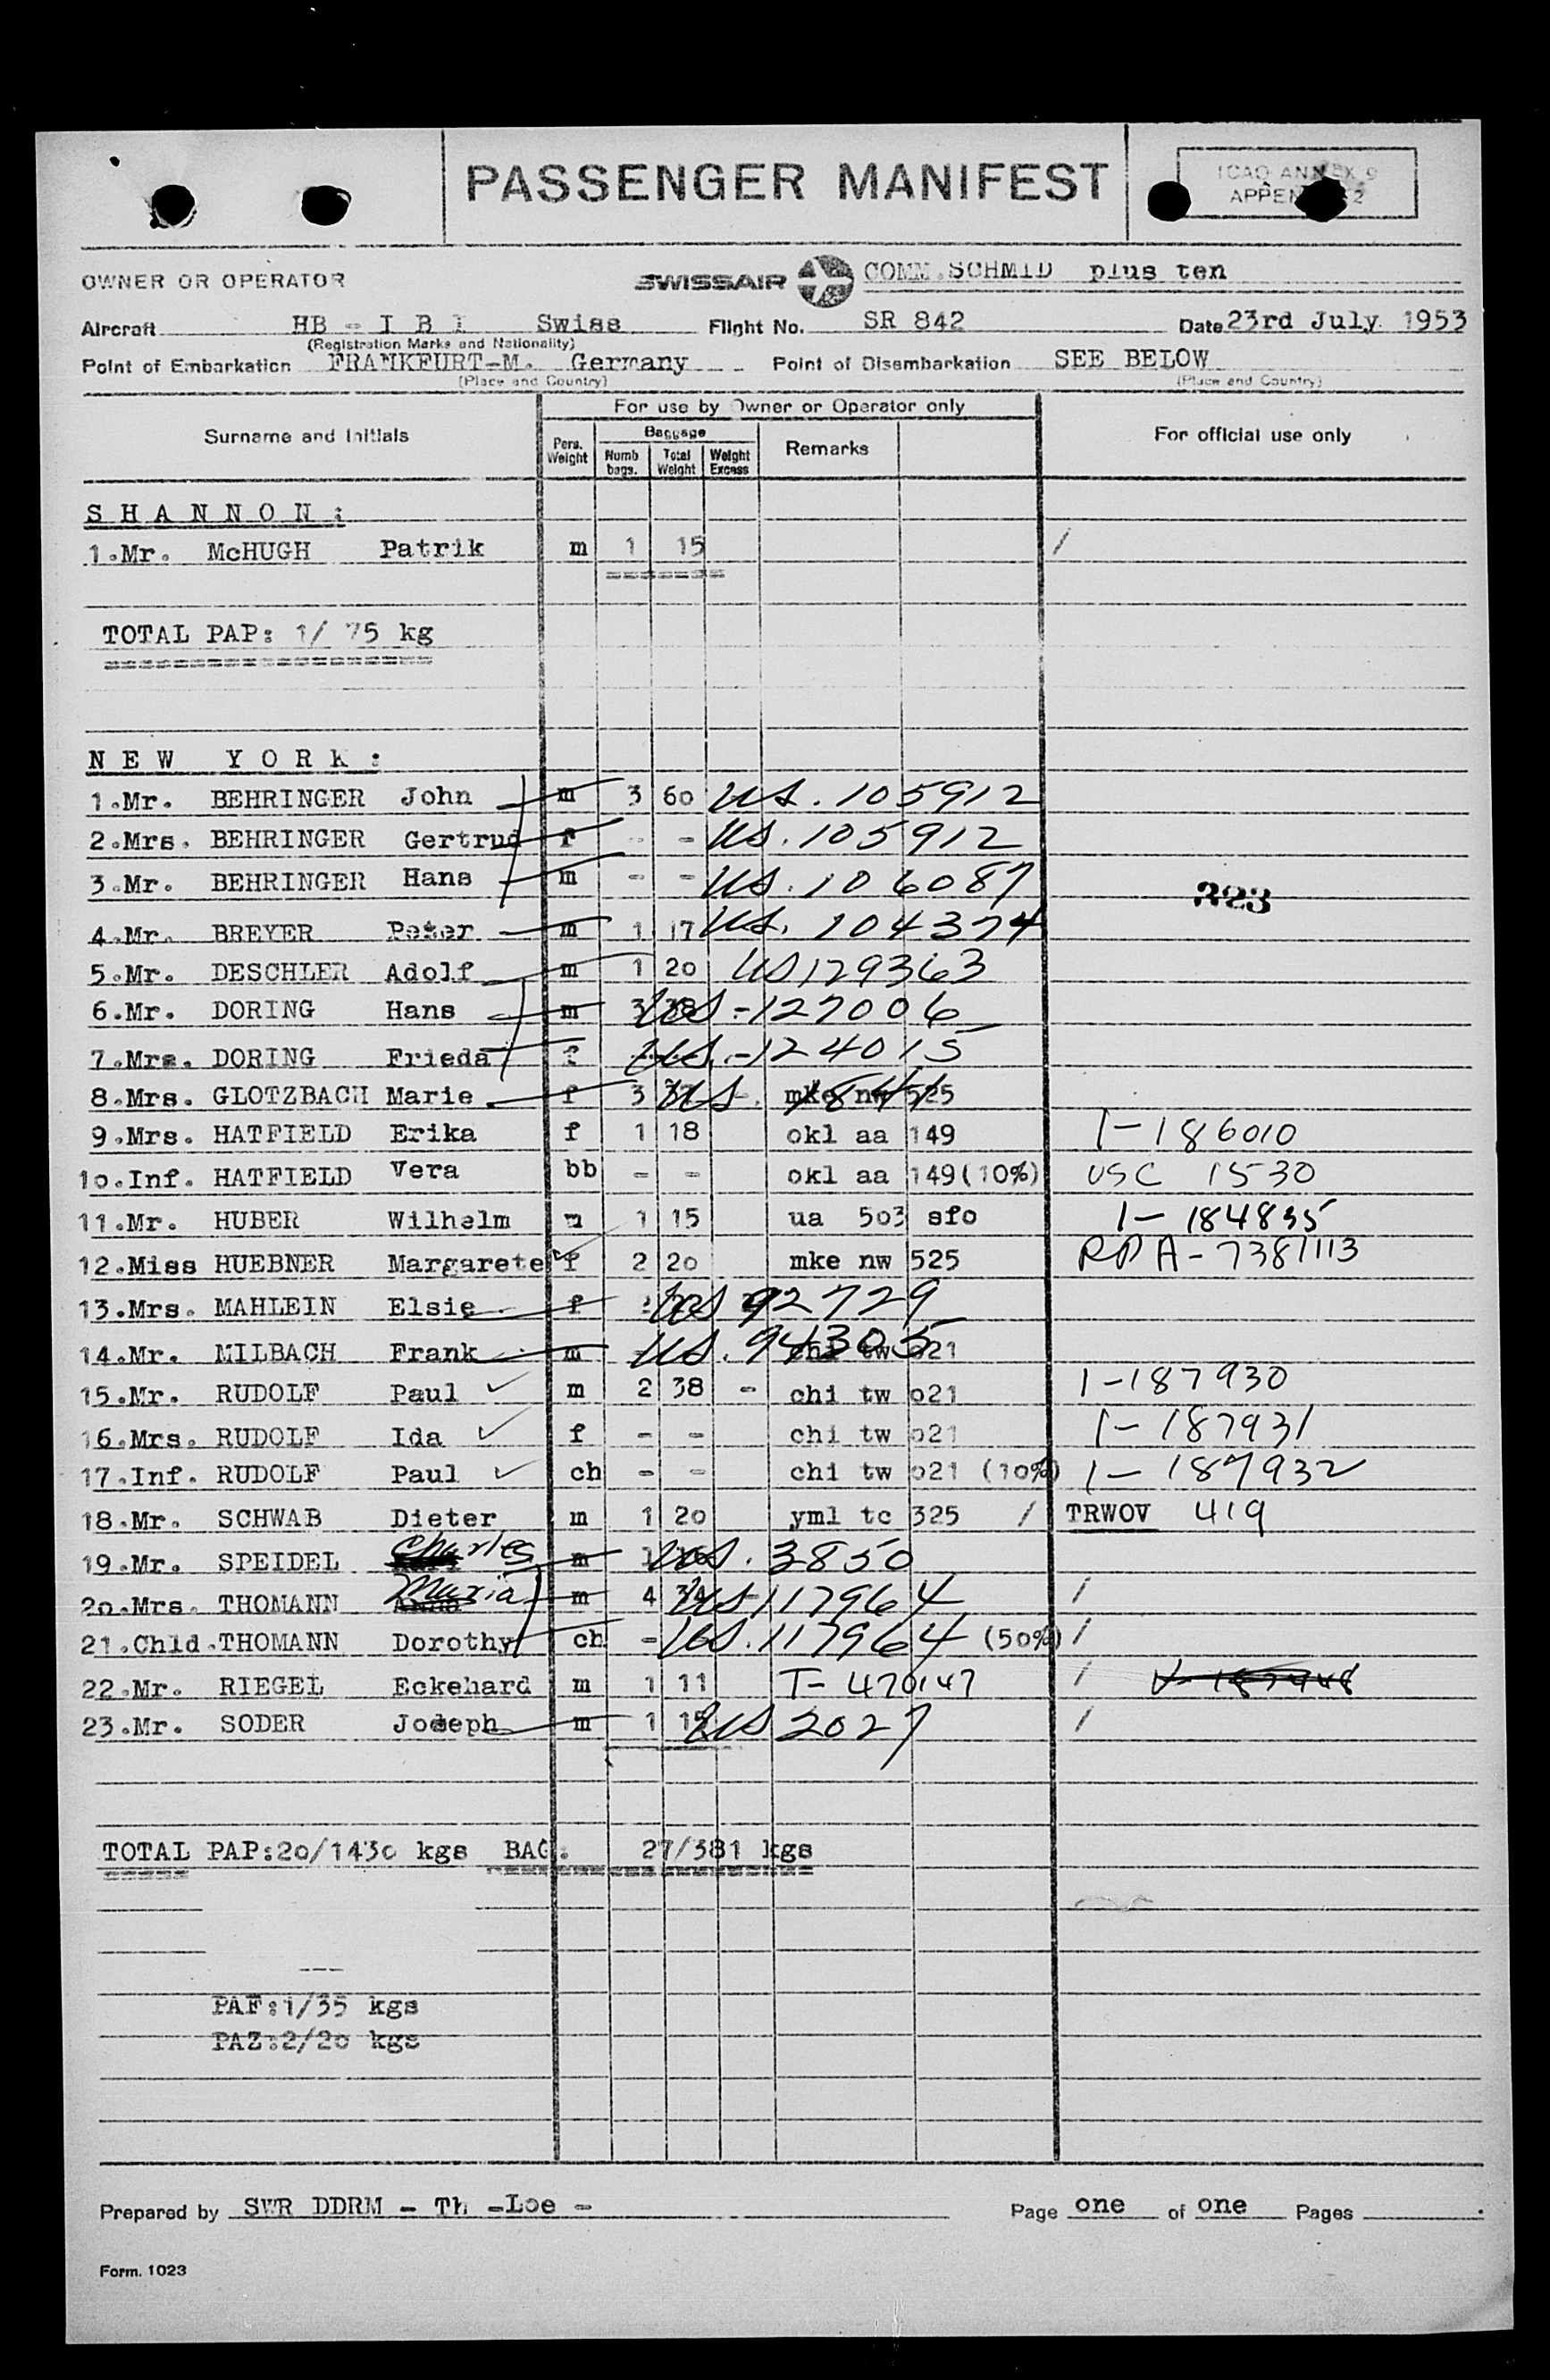 PASSENGER MANIFEST
ICAO ANNEX 9
APPEN 2
OWNER OR OPERATOR SWISSAIR COMM.SCHMID plus ten
Aircraft HB - I B I Swiss Flight No. SR 842 Date 23rd July 1953
(Registration Marks and Nationality)
Point of Embarkation FRANKFURT-M. Germany Point of Disembarkation SEE BELOW
(Place and Country) (Place and Country)
For use by Owner or Operator only
Surname and Initials Pers. Weight Baggage Numb bags. Total Weight Weight Excess Remarks For official use only
S H A N N O N :
1.Mr. McHUGH Patrik m 1 15 /
TOTAL PAP: 1/ 75 kg
N E W Y O R K :
1.Mr. BEHRINGER John m 3 60 US. 105912
2.Mrs. BEHRINGER Gertrud f - - US. 105912
3.Mr. BEHRINGER Hans m - - US. 106087
323
4.Mr. BREYER Peter m 1 17 US. 104374
5.Mr. DESCHLER Adolf m 1 20 US 129363
6.Mr. DORING Hans m 3 38 US-127006
7.Mrs. DORING Frieda f US.-124015
8.Mrs. GLOTZBACH Marie f 3 37 US - mke nw 525
9.Mrs. HATFIELD Erika f 1 18 okl aa 149 1-186010
10.Inf. HATFIELD Vera bb - - okl aa 149(10%) USC 1530
11.Mr. HUBER Wilhelm m 1 15 ua 503 sfo 1-184835
12.Miss HUEBNER Margarete f 2 20 mke nw 525 RP A-7381113
13.Mrs. MAHLEIN Elsie f 2 US 92729
14.Mr. MILBACH Frank m US. 94305 chi tw 021
15.Mr. RUDOLF Paul m 2 38 - chi tw 021 1-187930
16.Mrs. RUDOLF Ida f - - chi tw 021 1-187931
17.Inf. RUDOLF Paul ch - - chi tw 021 (10%) 1-187932
18.Mr. SCHWAB Dieter m 1 20 yml tc 325 / TRWOV 419
19.Mr. SPEIDEL Charles m 1 US. 3850
20.Mrs. THOMANN Maria m 4 34 US 117964 /
21.Chld.THOMANN Dorothy ch - US. 117964 (50%) /
22.Mr. RIEGEL Eckehard m 1 11 T- 470147 /
23.Mr. SODER Joseph m 1 15 US 2027 /
TOTAL PAP:20/1430 kgs BAG: 27/381 kgs
PAF:1/35 kgs
PAZ:2/20 kgs
Prepared by SWR DDRM - Th -Loe - Page one of one Pages
Form. 1023